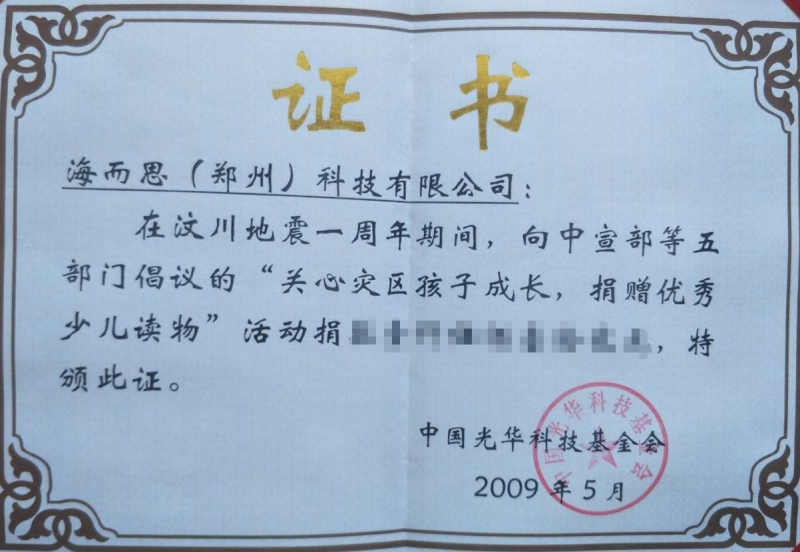 证书
海而思（郑州）科技有限公司：
在汶川地震一周年期间，向中宣部等五
部门倡议的“关心灾区孩子成长，捐赠优秀
少儿读物”活动捐，特
颁此证。
中国光华科技基金会
2009年5月
中国光华科技基金会